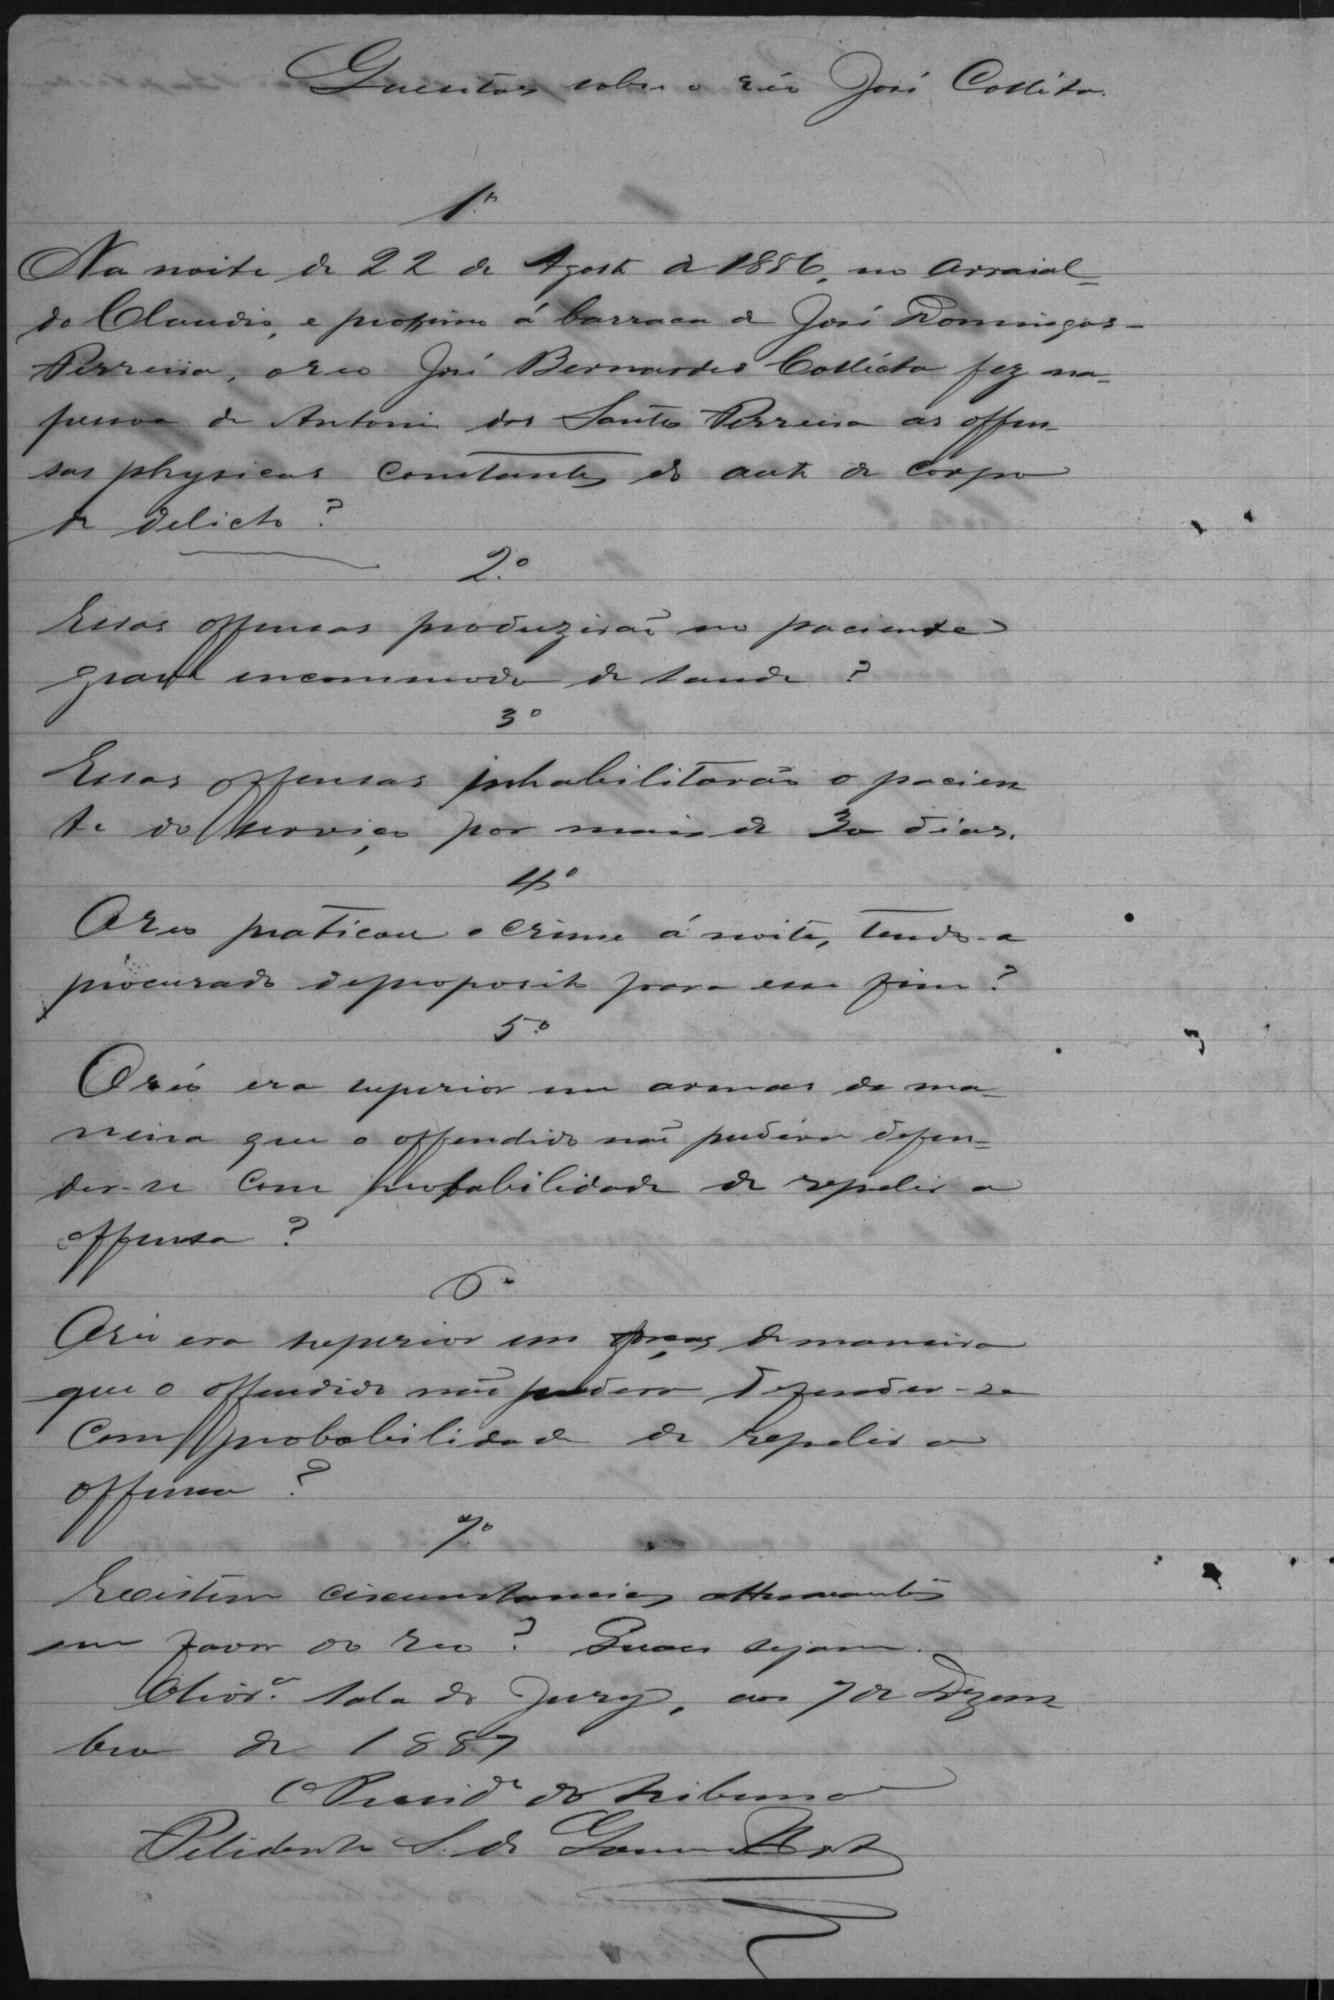 Quesitos sobre o réo José Colléta.
1.º
Na noite de 22 de Agosto de 1886, no arraial
do Claudio, e proximo á barraca de José Domingos
Ferreira, o reo José Bernardes Collécta fez na
pessoa de Antonio dos Santos Ferreira as offen-
sas physicas constantes do auto de corpo
de delicto?
2.º
Essas offensas produzirão no paciente
grave incommodo de saude?
3º
Essas offensas inhabilitarão o pacien
te do serviço por mais de 30 dias.
4º
O reo praticou o crime á noite, tendo-a
procurado de proposito para esse fim?
5º
O réo era superior em armas de ma-
neira que o offendido não pudera defen-
der-se com probabilidade de repelir a
offensa?
6º
O réu era superior em forças de maneira
que o offendido não pudera defender-se
com probabilidade de repelir a
offensa?
7º
Existem circumstancias attenuantes
em favor do reo? Quaes sejam.
sala do Jury, aos 7 de Dezem
bro de 1887
O Presid.e do tribunal
S. de